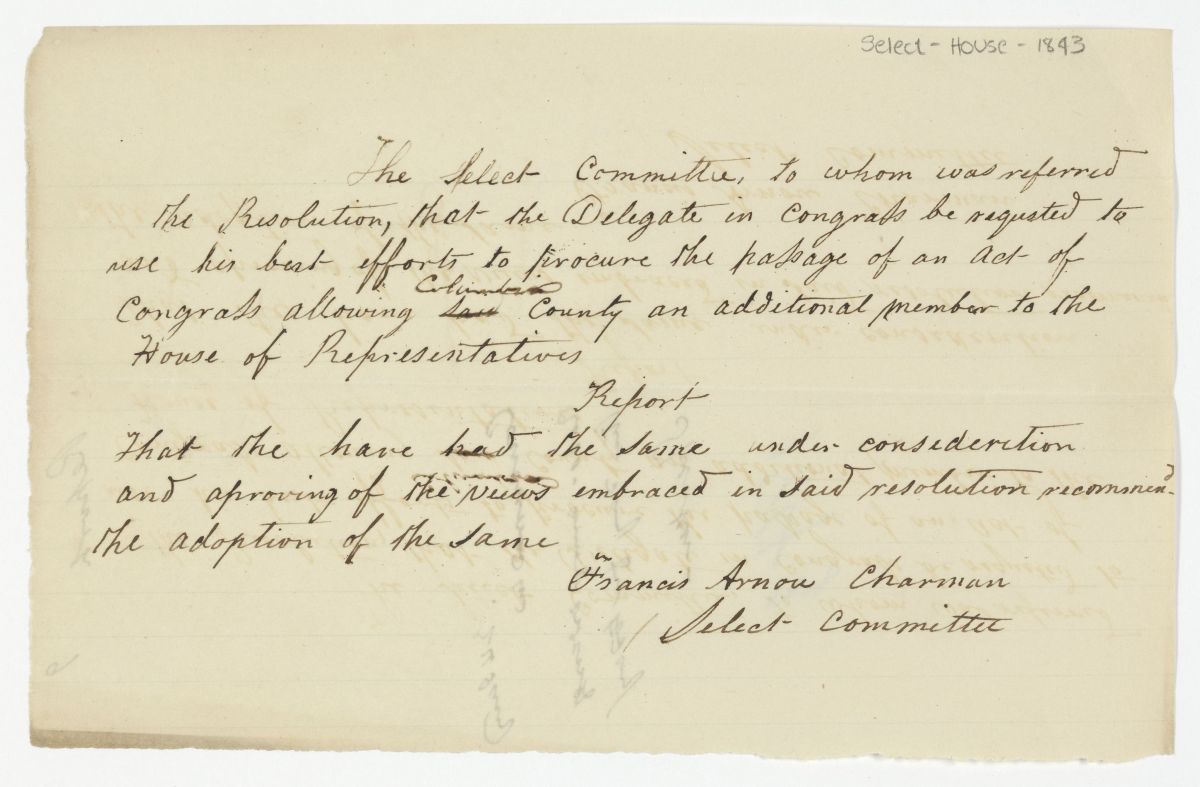 Select - House - 1843
The Select Committee, to whom was referred
the Resolution, that the Delegate in Congrass be requsted to
use his best efforts to procure the passage of an act of
Columbia
Congrass allowing County an additional member to the
House of Representatives
Report
That the have had the same under consederition
and aproving of the views embraced in said resolution recommend
the adoption of the same
Francis Arnow Charman
Select Committee